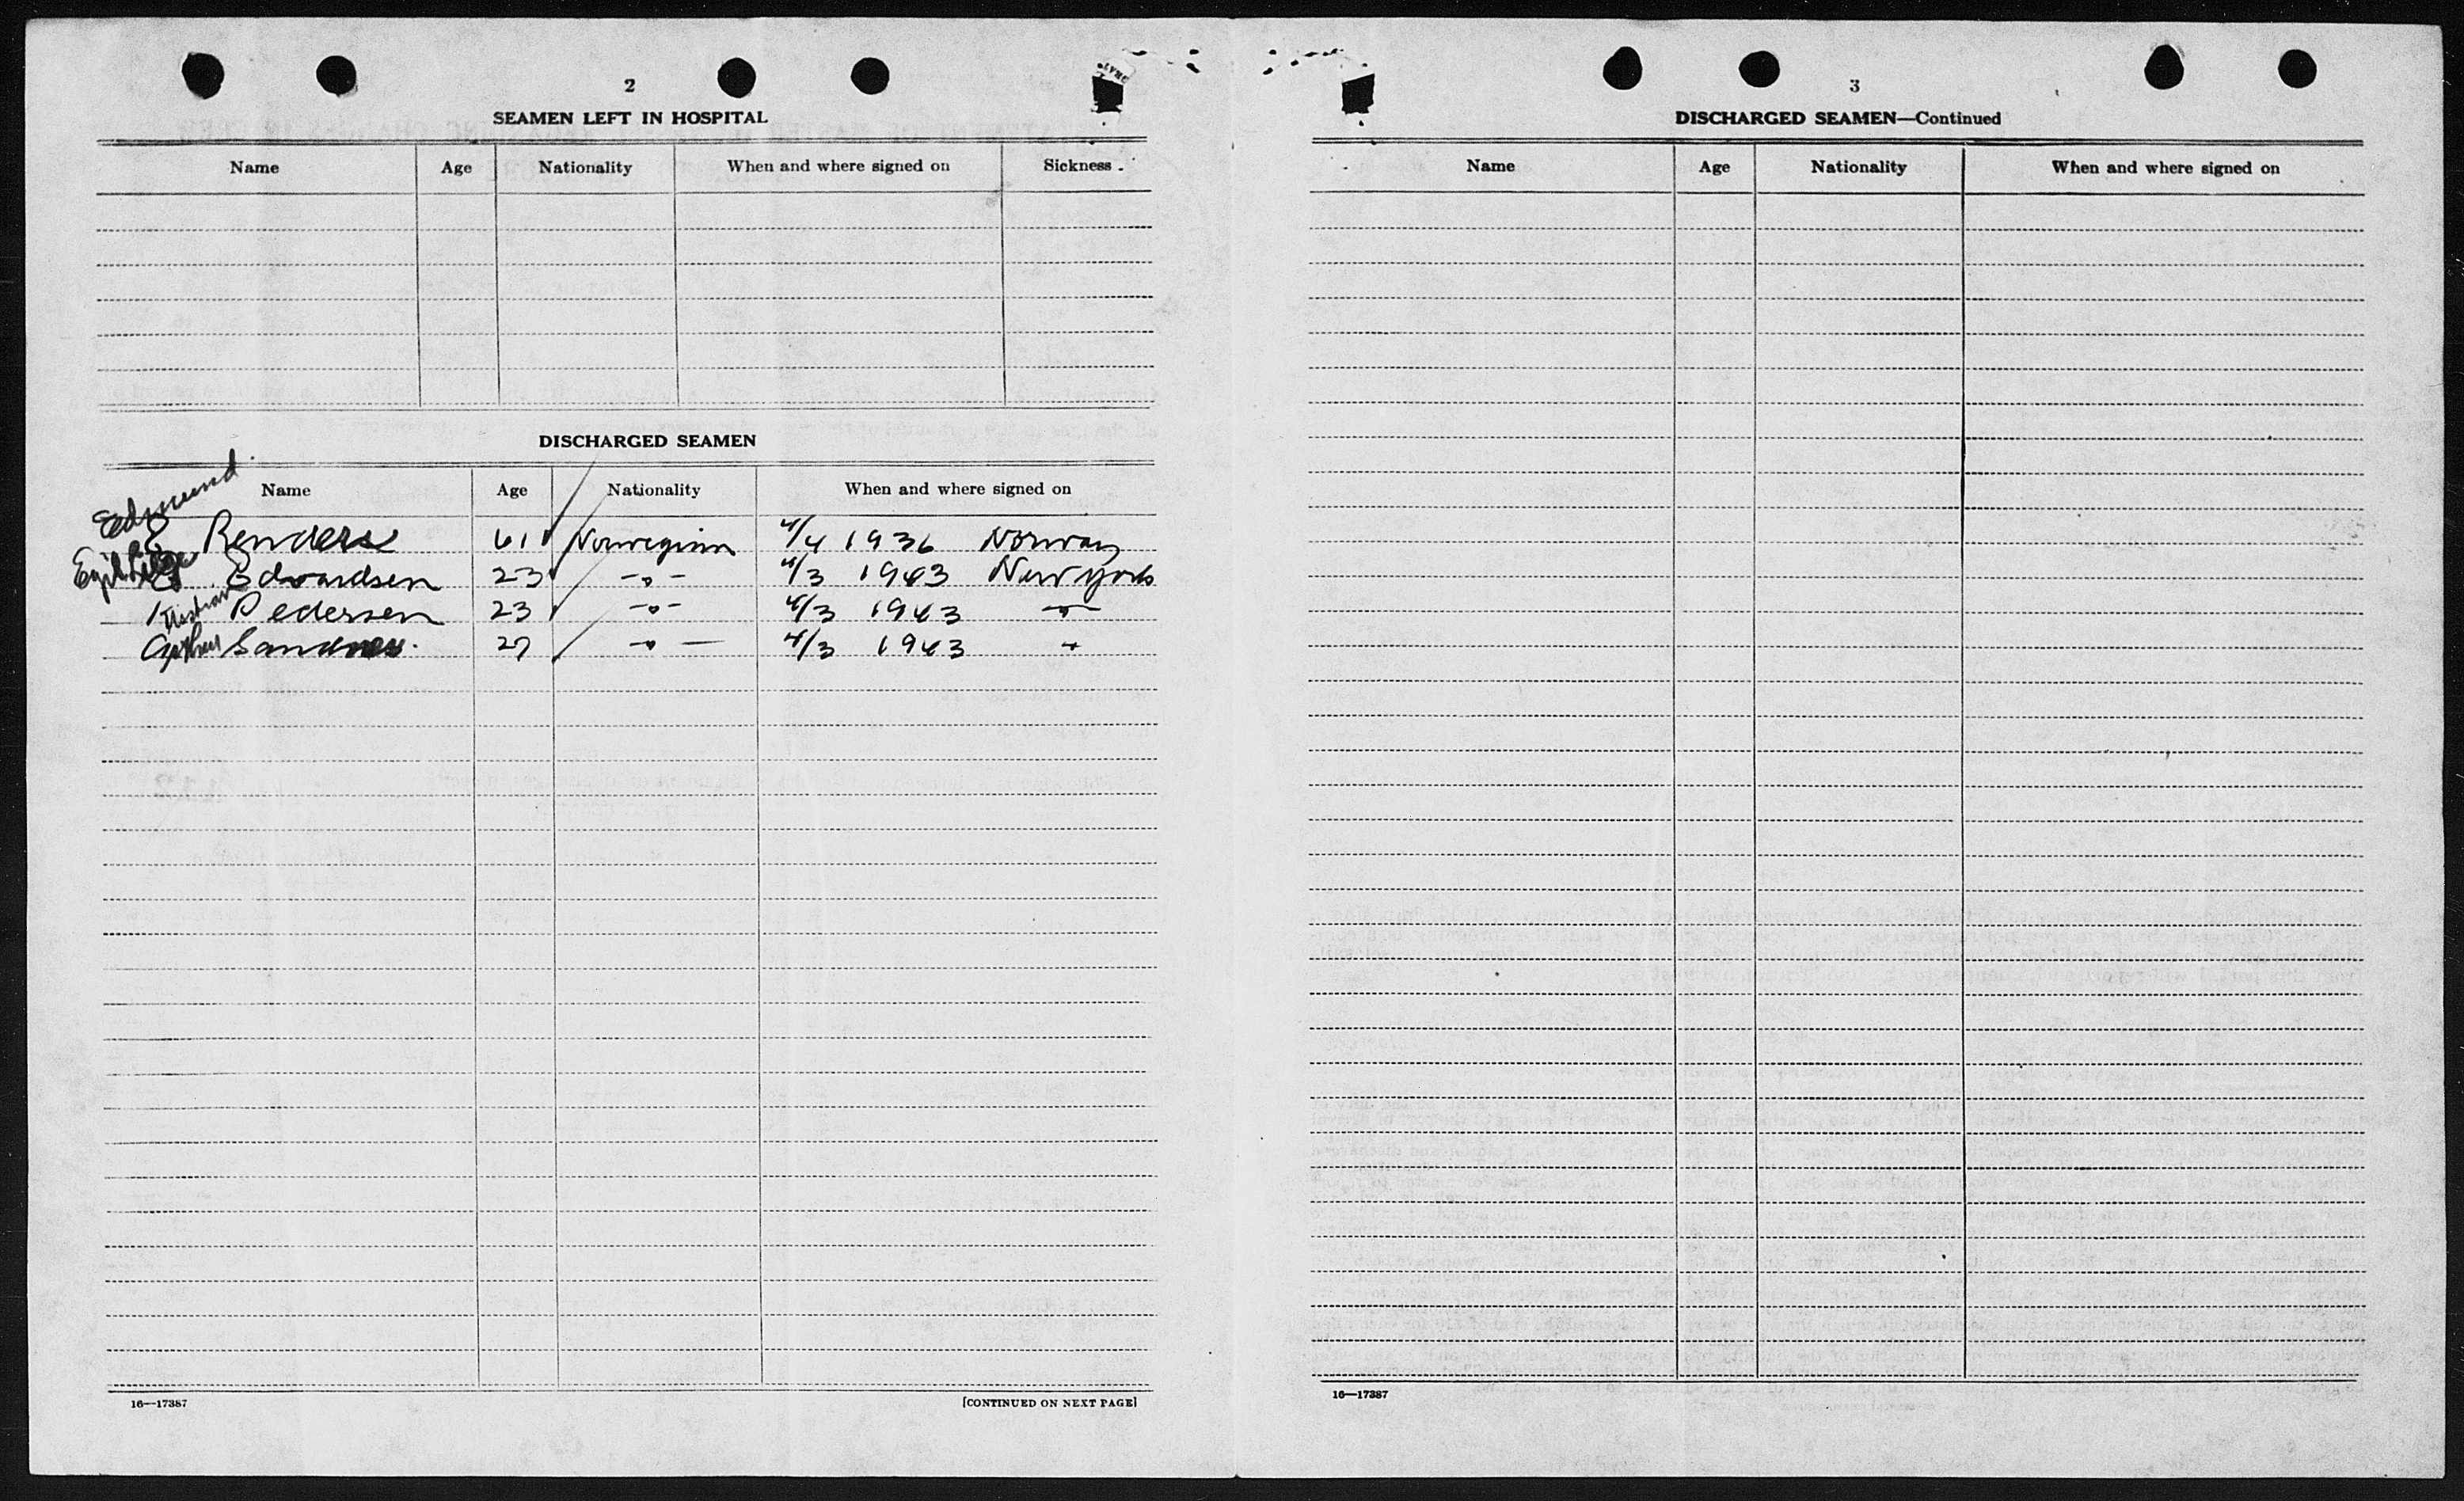 2
SEAMEN LEFT IN HOSPITAL
Name Age Nationality When and where signed on Sickness
DISCHARGED SEAMEN
Name Age Nationality When and where signed on
Edmund
E Renders 61 Norwegian 4/4 1936 Norway
Egil
E Edvardsen 23 -"- 4/3 1943 New York
Kristian Pedersen 23 -"- 4/3 1943 -"-
Arthur Sandnes. 27 -"- 4/3 1943 "
16—17387 [CONTINUED ON NEXT PAGE]
3
DISCHARGED SEAMEN—Continued
Name Age Nationality When and where signed on
16—17387